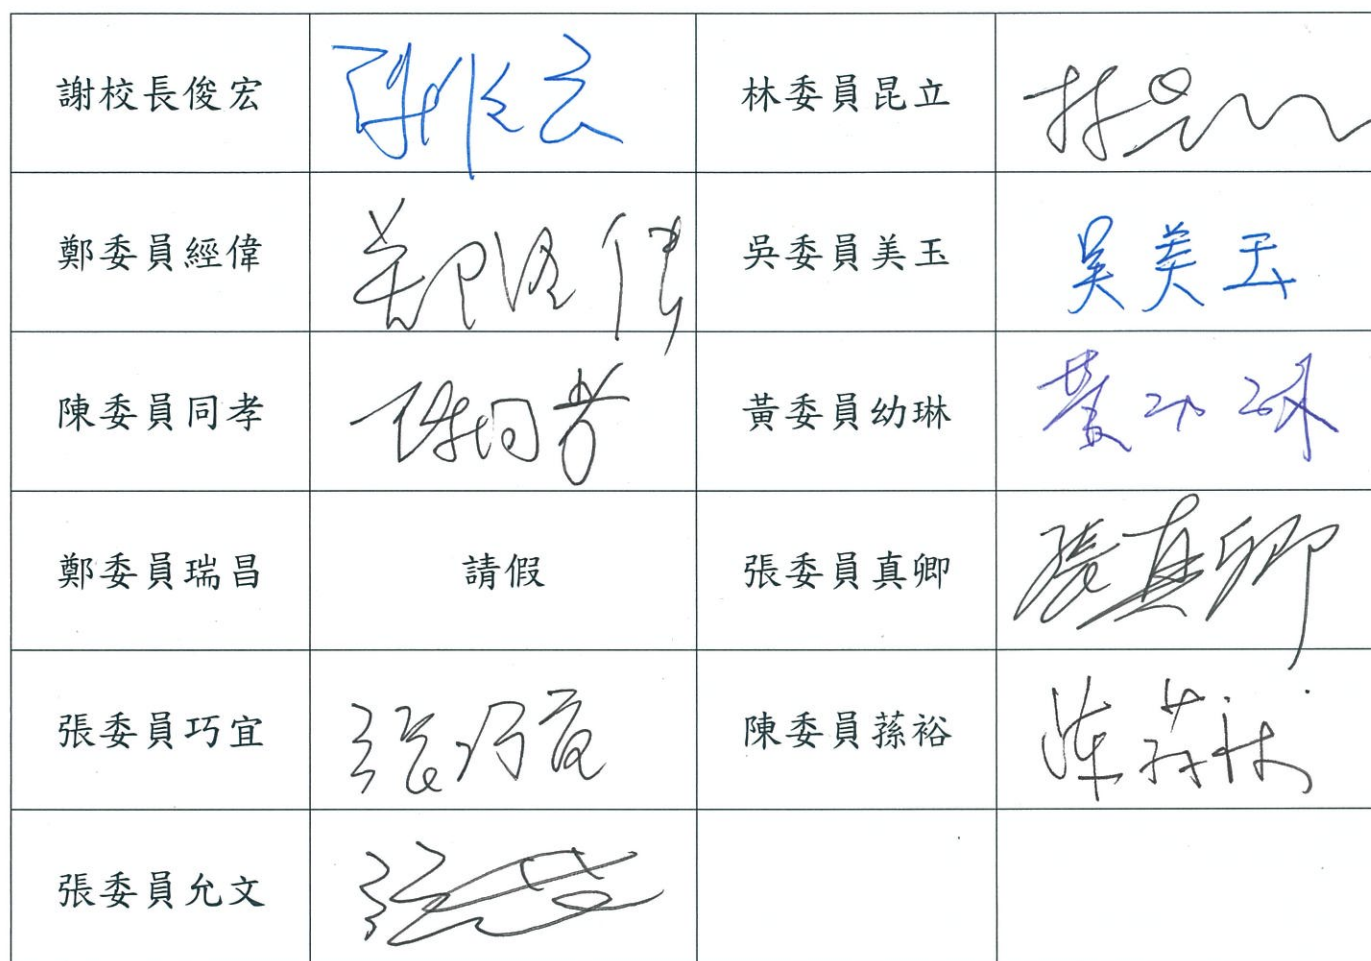 謝校長俊宏 林委員昆立
鄭委員經偉 鄭經偉 吳委員美玉 吳美玉
陳委員同孝 陳同孝 黃委員幼琳 黃幼琳
鄭委員瑞昌 請假 張委員真卿 張真卿
張委員巧宜 張巧宜 陳委員蓀裕 陳蓀裕
張委員允文